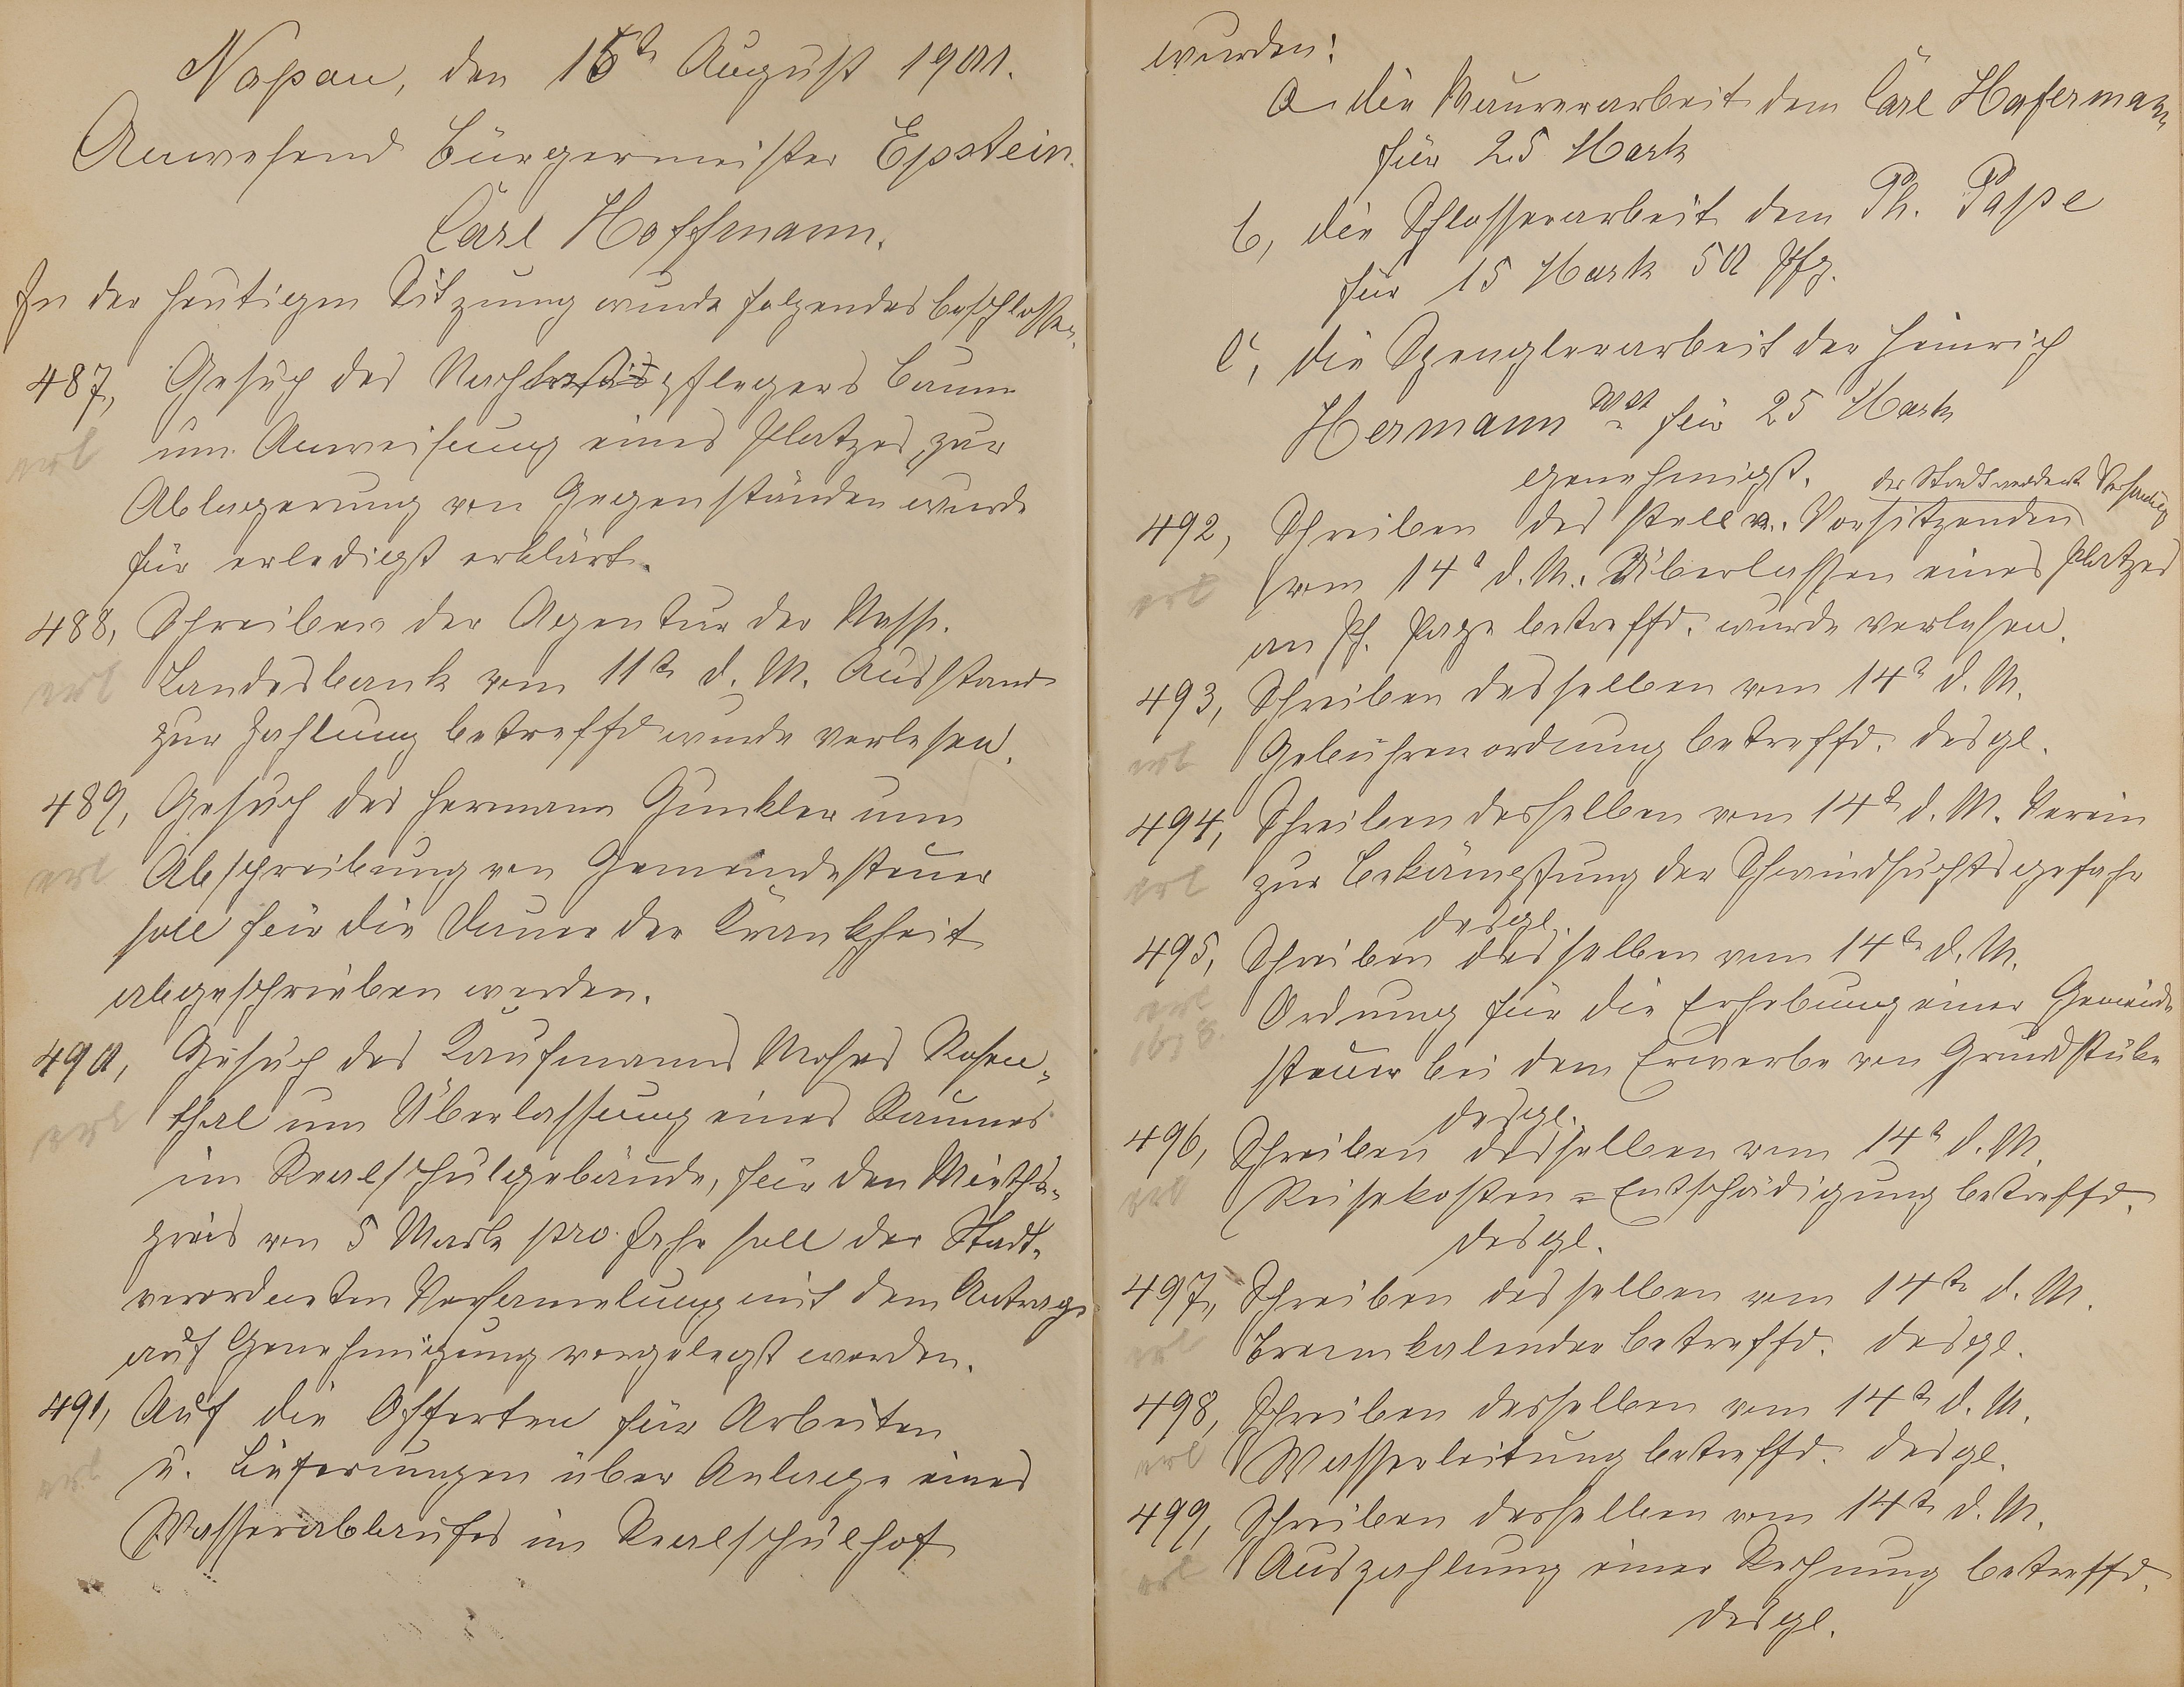 Nassau, den 16t August 1901.
Anwesend Bürgermeister Epstein.
Carl Hoffmann.
In der heutigen Sitzung wurde folgendes beschlossen,
487, Gesuch des Nachlasspflegers Baum
erl um Anweisung eines Platzes zur
Ablagerung von Gegenständen wurde
für erledigt erklärt.
488, Schreiben der Agentur der Nass.
erl Landesbank vom 11t d. M. Ausstand
zur Zahlung betreffd wurde verlesen.
489, Gesuch des Hermann Gunkler um
erl Abschreibung von Gemeindesteuer
soll für die Dauer der Krankheit
abgeschrieben werden.
490, Gesuch des Kaufmanns Moses Rosen-
erl thal um Überlassung eines Raumes
im Realschulgebäude, für den Mieths-
preis von 5 Mark pro Jahr soll der Stadt-
verordneten Versammlung mit dem Antrage
auf Genehmigung vorgelegt werden.
491, Auf die Offerten für Arbeiten
erl u. Lieferungen über Anlage eines
Wasserablaufes im Realschulhof
wurden:
a die Maurerarbeit dem Carl Haferman
für 25 Mark
b, die Schlosserarbeit dem Ph. Pape
für 15 Mark 50 Pfg.
c, die Spenglerarbeit der Heinrich
Hermann Wwe für 25 Mark
genehmigt.
der Stadtverordn. Versamlg
492, Schreiben des stellv. Vorsitzenden
erl vom 14t d. M. Überlassen eines Platzes
an Ph. Pape betreffd. wurde verlesen.
493, Schreiben desselben vom 14t d. M.
erl Gebührenordnung betreffd. desgl.
494, Schreiben desselben vom 14t d. M. Verein
erl zur Bekämpfung der Schwindsuchtsgefahr
desgl.
495, Schreiben desselben vom 14t d. M.
erl Ordnung für die Erhebung einer Gemeinde
steuer bei dem Erwerbe von Grundstücke
desgl.
496, Schreiben desselben vom 14t d. M.
erl Reisekosten = Entschädigung betreffd.
desgl.
497, Schreiben desselben vom 14t d. M.
erl Brennkalender betreffd. desgl.
498, Schreiben desselben vom 14t d. M.
erl Wasserleitung betreffd. desgl.
499, Schreiben desselben vom 14t d. M.
erl Auszahlung einer Rechnung betreffd.
desgl.